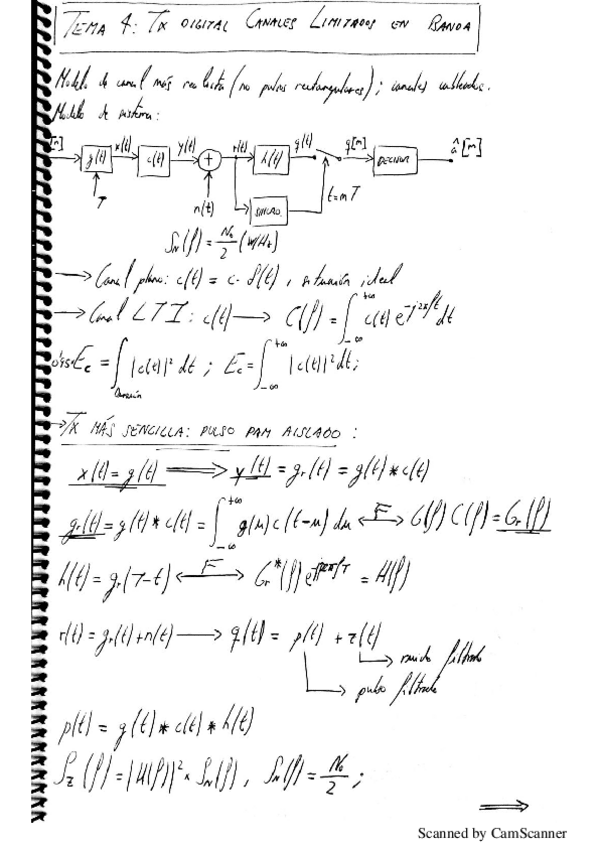 TEMA 4: TX DIGITAL CANALES LIMITADOS EN BANDA
Modelo de canal más realista (no pulsos rectangulares); canales cableados.
Modelo de sistema:
[m] g(t) x(t) c(t) y(t) + r(t) h(t) q(t) q[m] DECISOR â[m]
T n(t) SINCRO. t=mT
S_N(f) = N₀/2 (W/Hz)
→ Canal plano: c(t) = c · δ(t), situación ideal
→ Canal LTI: c(t) → C(f) = ∫_{-∞}^{+∞} c(t) e^{-j2πft} dt
E_c = ∫ |c(t)|² dt ; E_c = ∫_{-∞}^{+∞} |c(t)|² dt;
→ TX MÁS SENCILLA: PULSO PAM AISLADO:
x(t) = g(t) ⟹ y(t) = g_r(t) = g(t) * c(t)
g_r(t) = g(t) * c(t) = ∫_{-∞}^{+∞} g(u) c(t-u) du ⟷F G(f) C(f) = G_r(f)
h(t) = g_r(T-t) ⟷F G_r*(f) e^{-j2πfT} = H(f)
r(t) = g_r(t) + n(t) → q(t) = p(t) + z(t)
→ ruido filtrado
→ pulso filtrado
p(t) = g(t) * c(t) * h(t)
S_z(f) = |H(f)|² × S_N(f), S_N(f) = N₀/2 ;
⟹
Scanned by CamScanner